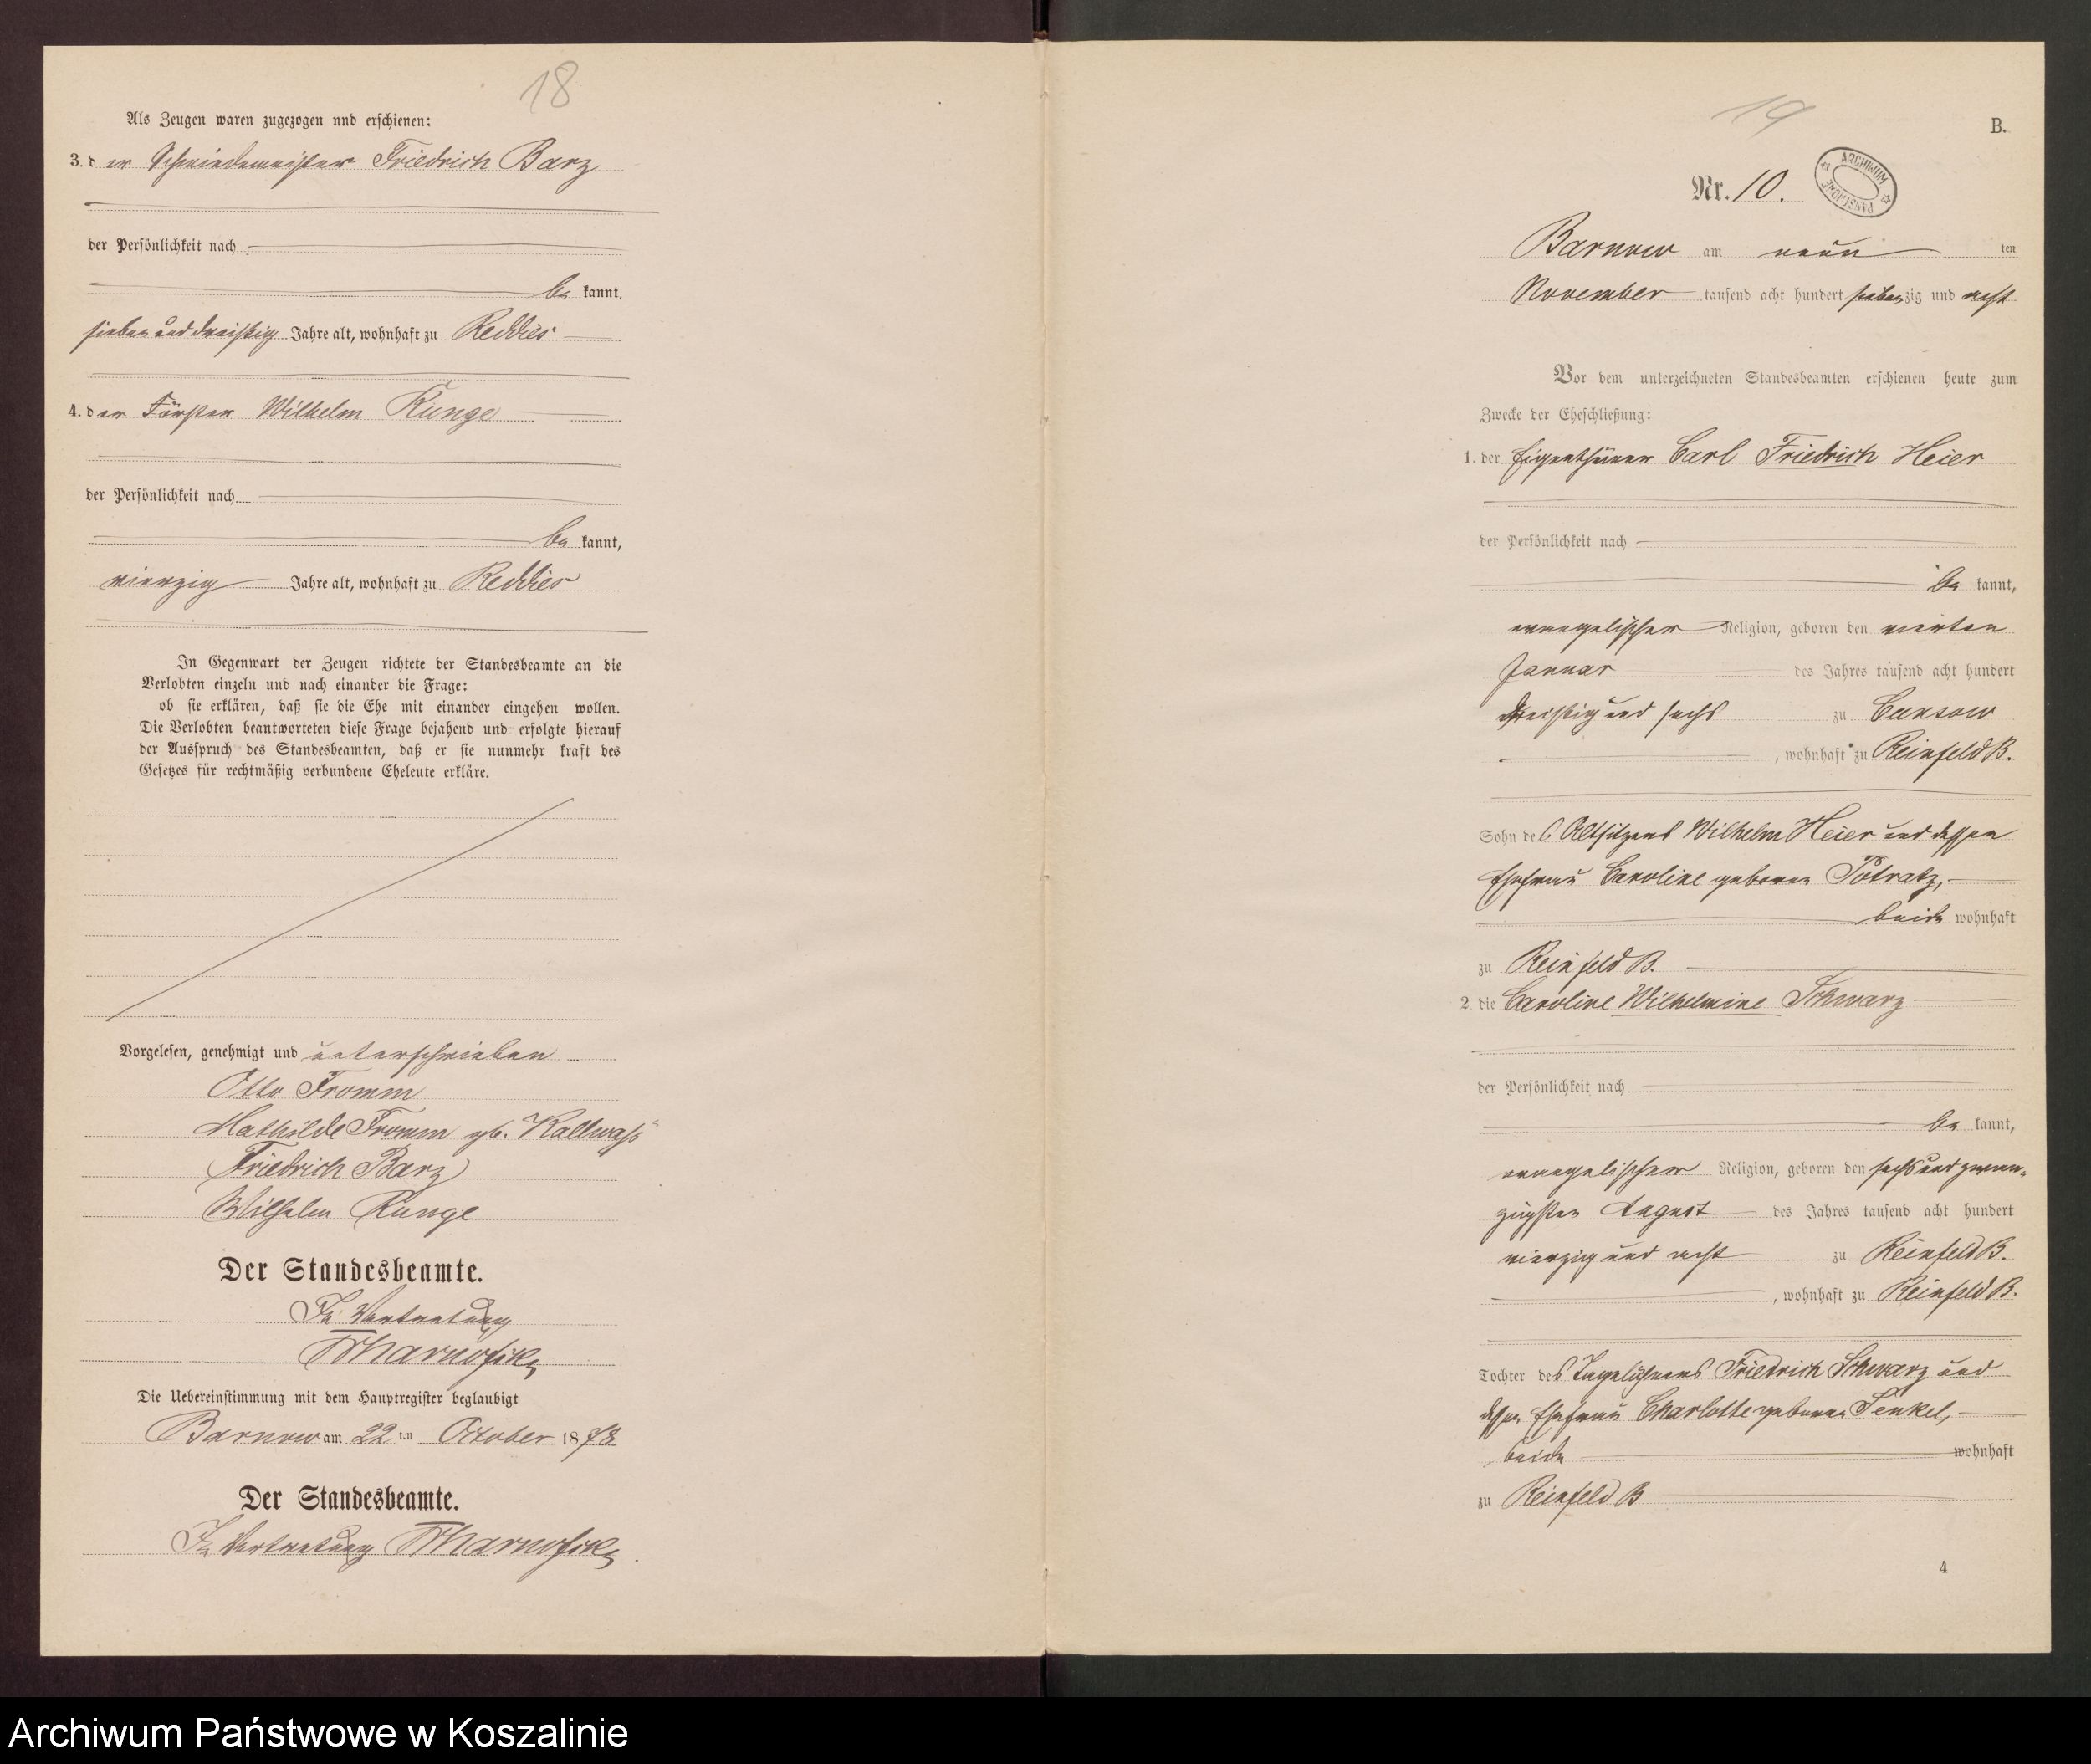 18
Als Zeugen waren zugezogen nnd erschienen:
3. der Schmiedemeister Friedrich Barz
der Persönlichkeit nach
be kannt,
sieben und dreißig Jahre alt, wohnhaft zu Reddies
4. der Förster Wilhelm Runge
der Persönlichkeit nach
be kannt,
vierzig Jahre alt, wohnhaft zu Reddies
In Gegenwart der Zeugen richtete der Standesbeamte an die
Verlobten einzeln und nach einander die Frage:
ob sie erklären, daß sie die Ehe mit einander eingehen wollen.
Die Verlobten beantworteten diese Frage bejahend und erfolgte hierauf
der Ausspruch des Standesbeamten, daß er sie nunmehr kraft des
Gesetzes für rechtmäßig verbundene Eheleute erkläre.
Vorgelesen, genehmigt und unterschrieben
Otto Fromm
Mathilde Fromm geb. Kallwaß
Friedrich Barz
Wilhelm Runge
Der Standesbeamte.
In Vertretung
Die Uebereinstimmung mit dem Hauptregister beglaubigt
Barnow am 22ten October 1878
Der Standesbeamte.
In Vertretung
19
B.
Nr. 10.
ARCHIWUM PAŃSTWOWE
Barnow am neun ten
November tausend acht hundert siebenzig und acht
Vor dem unterzeichneten Standesbeamten erschienen heute zum
Zwecke der Eheschließung:
1. der Eigenthümer Carl Friedrich Heier
der Persönlichkeit nach
be kannt,
evangelischer Religion, geboren den vierten
Januar des Jahres tausend acht hundert
dreißig und sechs zu Cansow
, wohnhaft zu Reinfeld B.
Sohn des Altsitzers Wilhelm Heier und dessen
Ehefrau Caroline geboren Potratz,
beide wohnhaft
zu Reinfeld B.
2 die Caroline Wilhelmine Schwarz
der Persönlichkeit nach
be kannt,
evangelischer Religion, geboren den sechs und zwan-
zigsten August des Jahres tausend acht hundert
vierzig und acht zu Reinfeld B.
, wohnhaft zu Reinfeld B.
Tochter des Tagelöhners Friedrich Schwarz und
dessen Ehefrau Charlotte geboren Tenkel,
beide wohnhaft
zu Reinfeld B
4
Archiwum Państwowe w Koszalinie